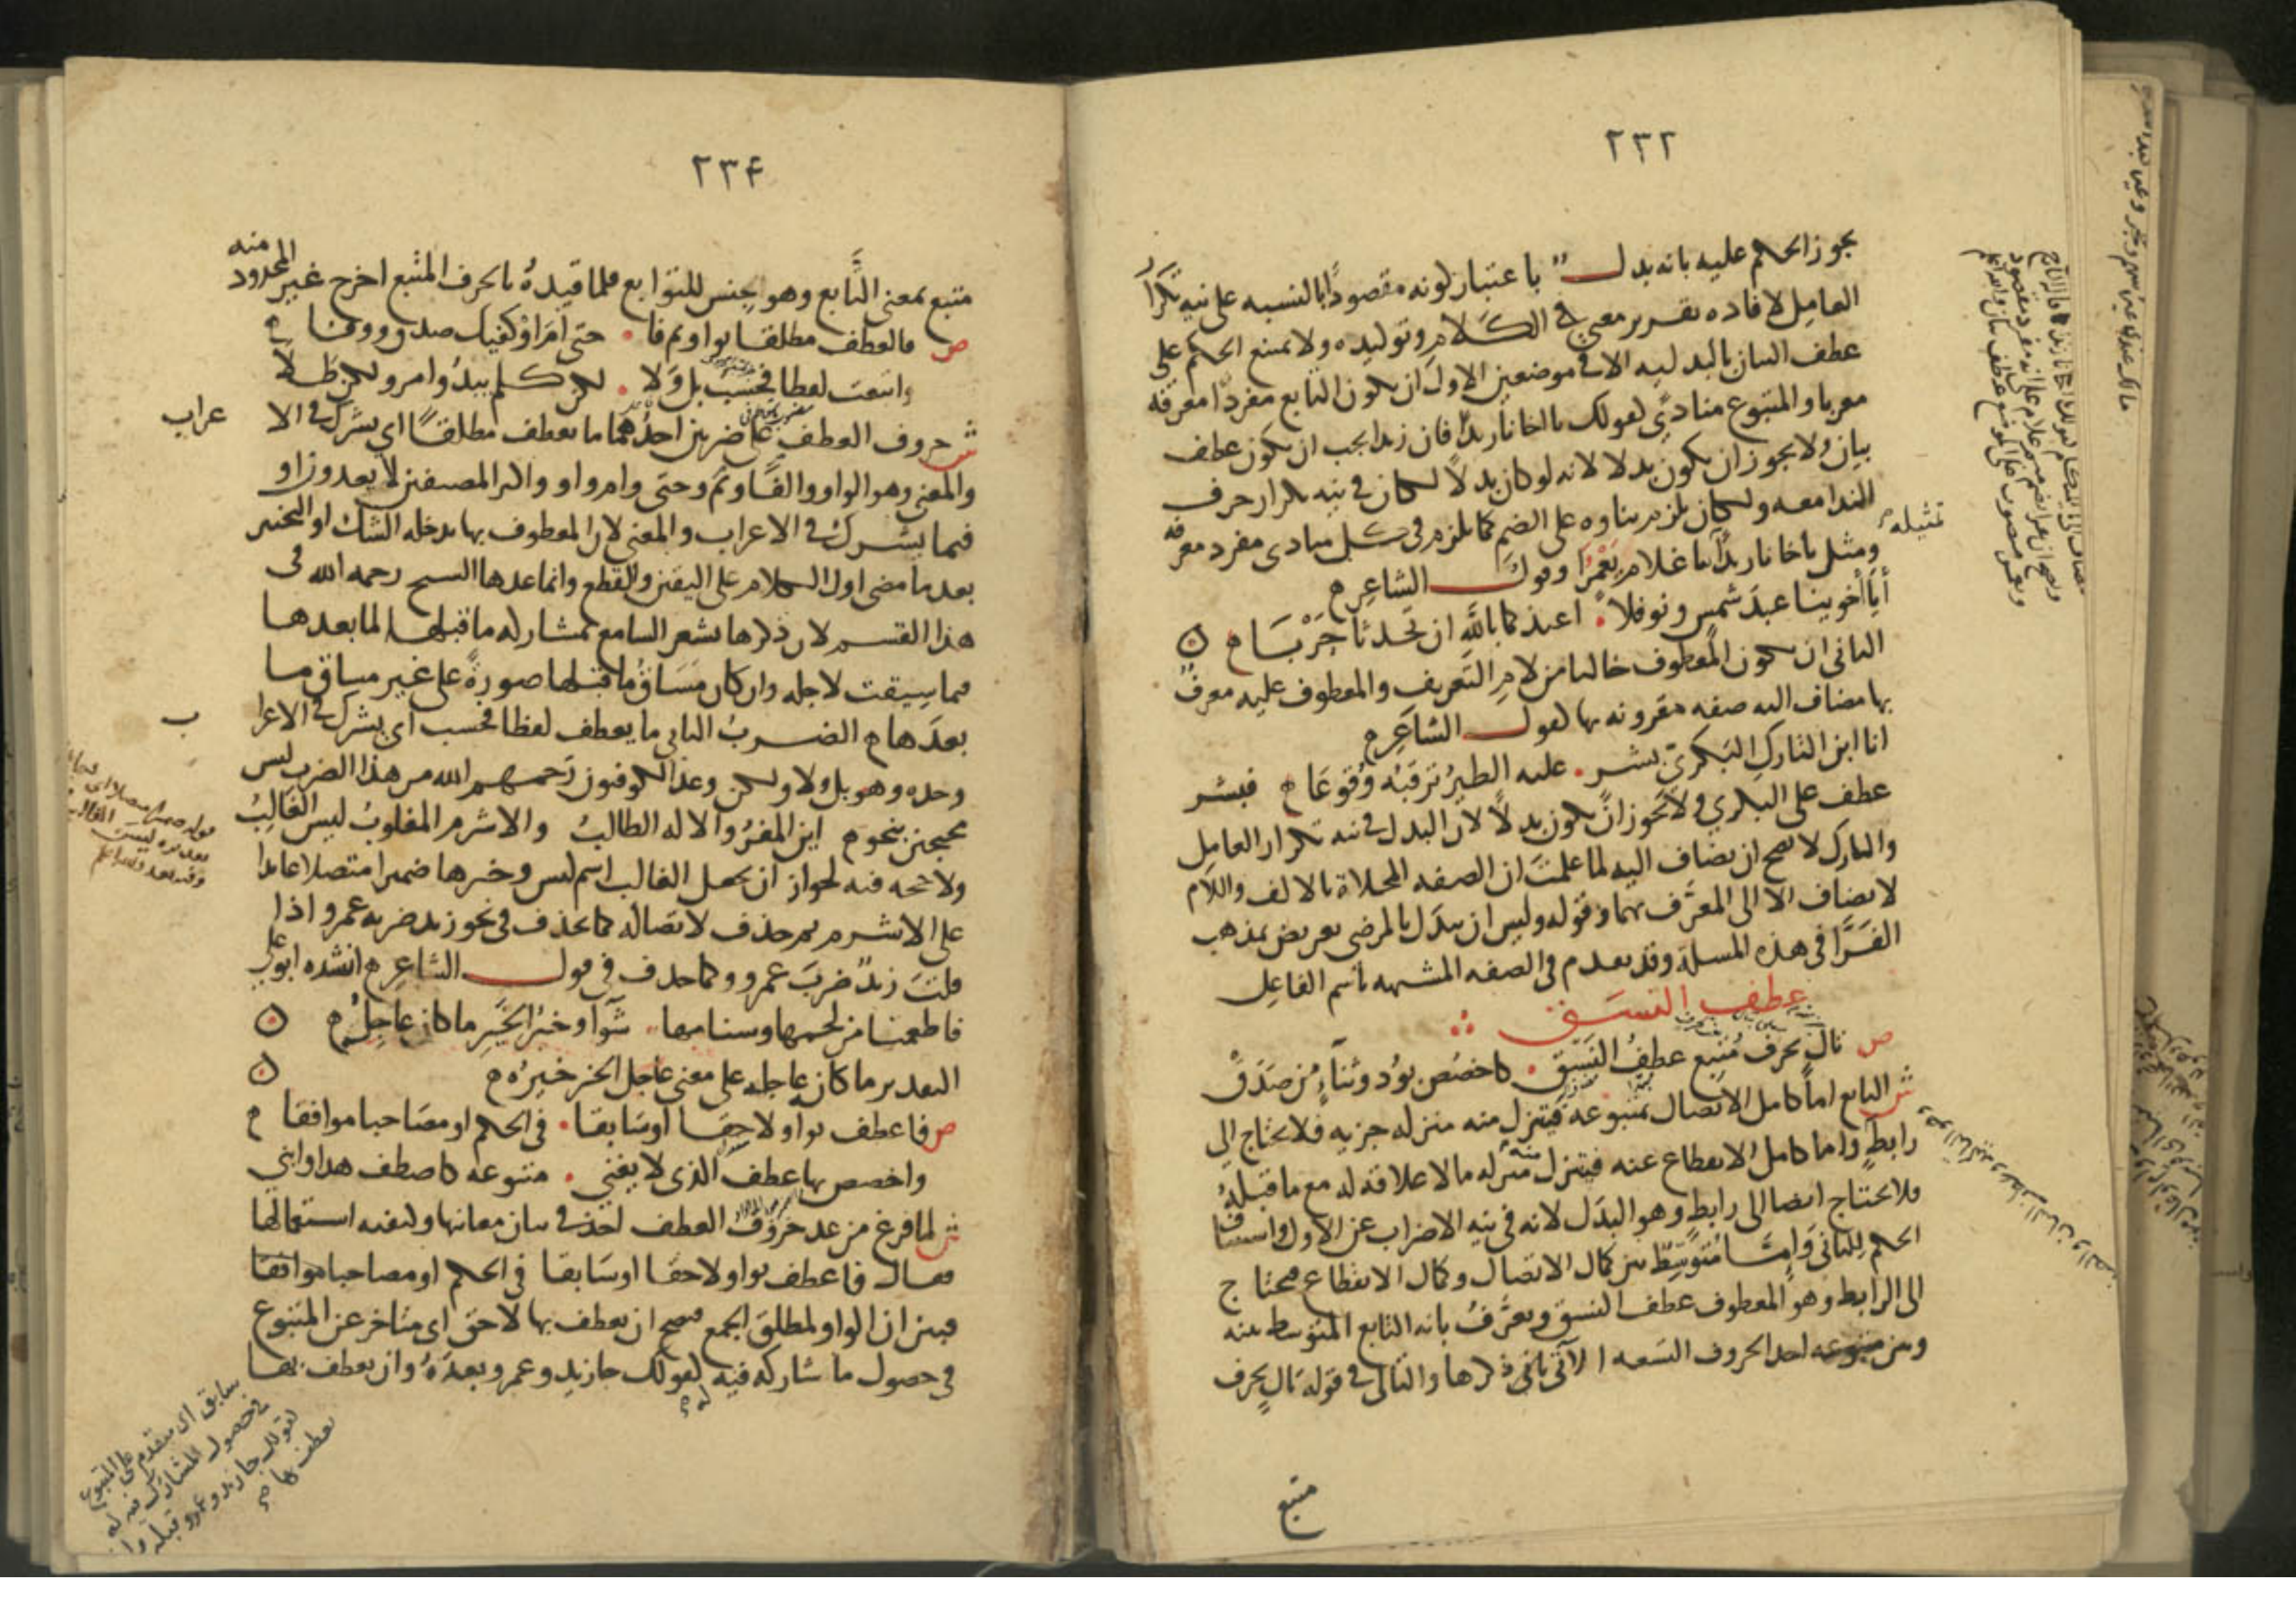 ٢٣٢
يجوز الحكم عليه بانه بدل باعتبار كونه مقصودًا بالنسبه على نيه تكرار
العامل لافاده تقرير معنى في الكلام وتوكيده ولا يمتنع الحكم على
عطف البيان بالبدليه الا في موضعين الاول ان يكون التابع مفردًا معرفه
معربا والمتبوع منادى كقولك يا اخانا زيدًا فان زيدا يجب ان يكون عطف
بيان ولا يجوز ان يكون بدلا لانه لو كان بدلًا لكان في نيه تكرار حرف
الندا معه ولكان يلزم بناوه على الضم كما يلزم في كل منادى مفرد معرفه
ومثل يا اخانا زيدًا تمثيله يا غلام يَعْمُرَا وقول الشاعر
أيَا أخوينا عبدَ شمسٍ ونوفلا. اعيذكما بالله ان تحدثا حَرْبَا
الثاني ان يكون المعطوف خاليا من لام التعريف والمعطوف عليه معرفٌ
بها مضاف اليه صفه مقرونه بها كقول الشاعر
انا ابن التارك البكريّ بشر. عليه الطيرُ ترقبُه وُقوعَا فبشر
عطف على البكري ولا يجوز ان يكون بدلًا لان البدل في نيه تكرار العامل
والتارك لا يصح ان يضاف اليه لما علمتَ ان الصفه المحلاة بالالف واللام
لا تضاف الا الى المعرَّف بهما وقوله وليس ان يبدَل بالمرضي تعريض بمذهب
الفرَّا في هذه المسلة وقد تقدم في الصفه المشبهه باسم الفاعل
عطف النسق
ص تالٍ بحرف مُتبِع عطف النَسَق. كاخصُص بوُد وثناءٍ مَن صَدَقْ
ش التابع اما كامل الاتصال بمتبوعه فيتنزل منه منزله جزيه فلا يحتاج الى
رابطٍ واما كامل الانقطاع عنه فيتنزل منه منزله ما لا علاقه له مع ما قبله
فلا يحتاج ايضا الى رابطٍ وهو البدَل لانه في نيه الاضراب عن الاول واستيناف
الحكم للثاني وامّا متوسِّطٌ بين كمال الاتصال وكمال الانقطاع فيحتاج
الى الرابط وهو المعطوف عطف النسق ويعرَّفُ بانه التابع المتوسط بينه
وبين متبوعه احد الحروف التسعه الآتي ذكرها والتالي في قوله تالٍ بحرف
متبع
٢٣٤
متبع بمعنى التَّابع وهو جنس للتوابع فلما قيدهُ بالحرف المتبع اخرج غير المحدود منه
ص فالعطف مطلقا بواو ثم فا. حتى أمَ اَوْ كفيك صدق ووفا
واتبعت لفظا فحسب بل وَلا. لكن كلم يبدُ وامرو لكن طلا
ش حروف العطف على ضربين احدُهما ما يعطف مطلقًا اي يشرك في الا عراب
والمعنى وهو الواو والفا وثم وحتى وام واو واكثر المصنفين لا يعدون او
فيما يشرك في الاعراب والمعنى لان المعطوف بها يدخله الشك او التخيير
بعد ما مضى اول الكلام على اليقين والقطع وانما عدها الشيخ رحمه الله في
هذا القسم لان ذكرها يشعر السامع بمشاركه ما قبلها لما بعدها
فيما سيقت لاجله وان كان مَسَاقُ ما قبلها صورةً على غير مساق ما
بعدَها الضربُ الثاني ما يعطف لفظا فحسب اي يشرك في الاعرا ب
وحده وهو بل ولا ولكن وعدَّ الكوفيون رَحمهم الله من هذا الضرب ليس
محتجين بنحو اين المفرُ والاله الطالبُ والاشرم المغلوبُ ليس الغالبُ
ولا حجه فيه لجواز ان يجعل الغالب اسم ليس وخبرها ضميرا متصلا عايدا
على الاشرم ثم حذف لاتصاله كما يحذف في نحو زيد ضربه عمرو اذا
قلتَ زيدٌ ضربَ عمرو وكما حذف في قول الشاعر انشده ابو علي
فاطعمنا من لحمها وسنامها. شواء وخيرُ الخَيرِ ما كان عاجلُه
التقدير ما كانه عاجله على معنى عاجل الخير خيرُه
ص فاعطف بواو لاحقا اوسَابقا. في الحكم او مصَاحبا موافقا
واخصص بها عطف الذي لا يغني. متبوعه كاصطف هذا وابني
ش لما فرغ من عد حُروف العطف اخذ في بيان معانيها وكيفيه استعمالها
فقال فاعطف بواو لاحقا اوسَابقا في الحكم او مصاحبا موافقا
فبين ان الواو لمطلق الجمع فيصح ان يعطف بها لاحق اي متاخر عن المتبوع
في حصول ما شاركه فيه له كقولك جا زيد وعمرو بعدَهُ وان يعطف بها
سابق اي متقدم على المتبوع
في حصول المشارك فيه له
كقولك جا زيد وعمرو قبله وان
يعطف بها